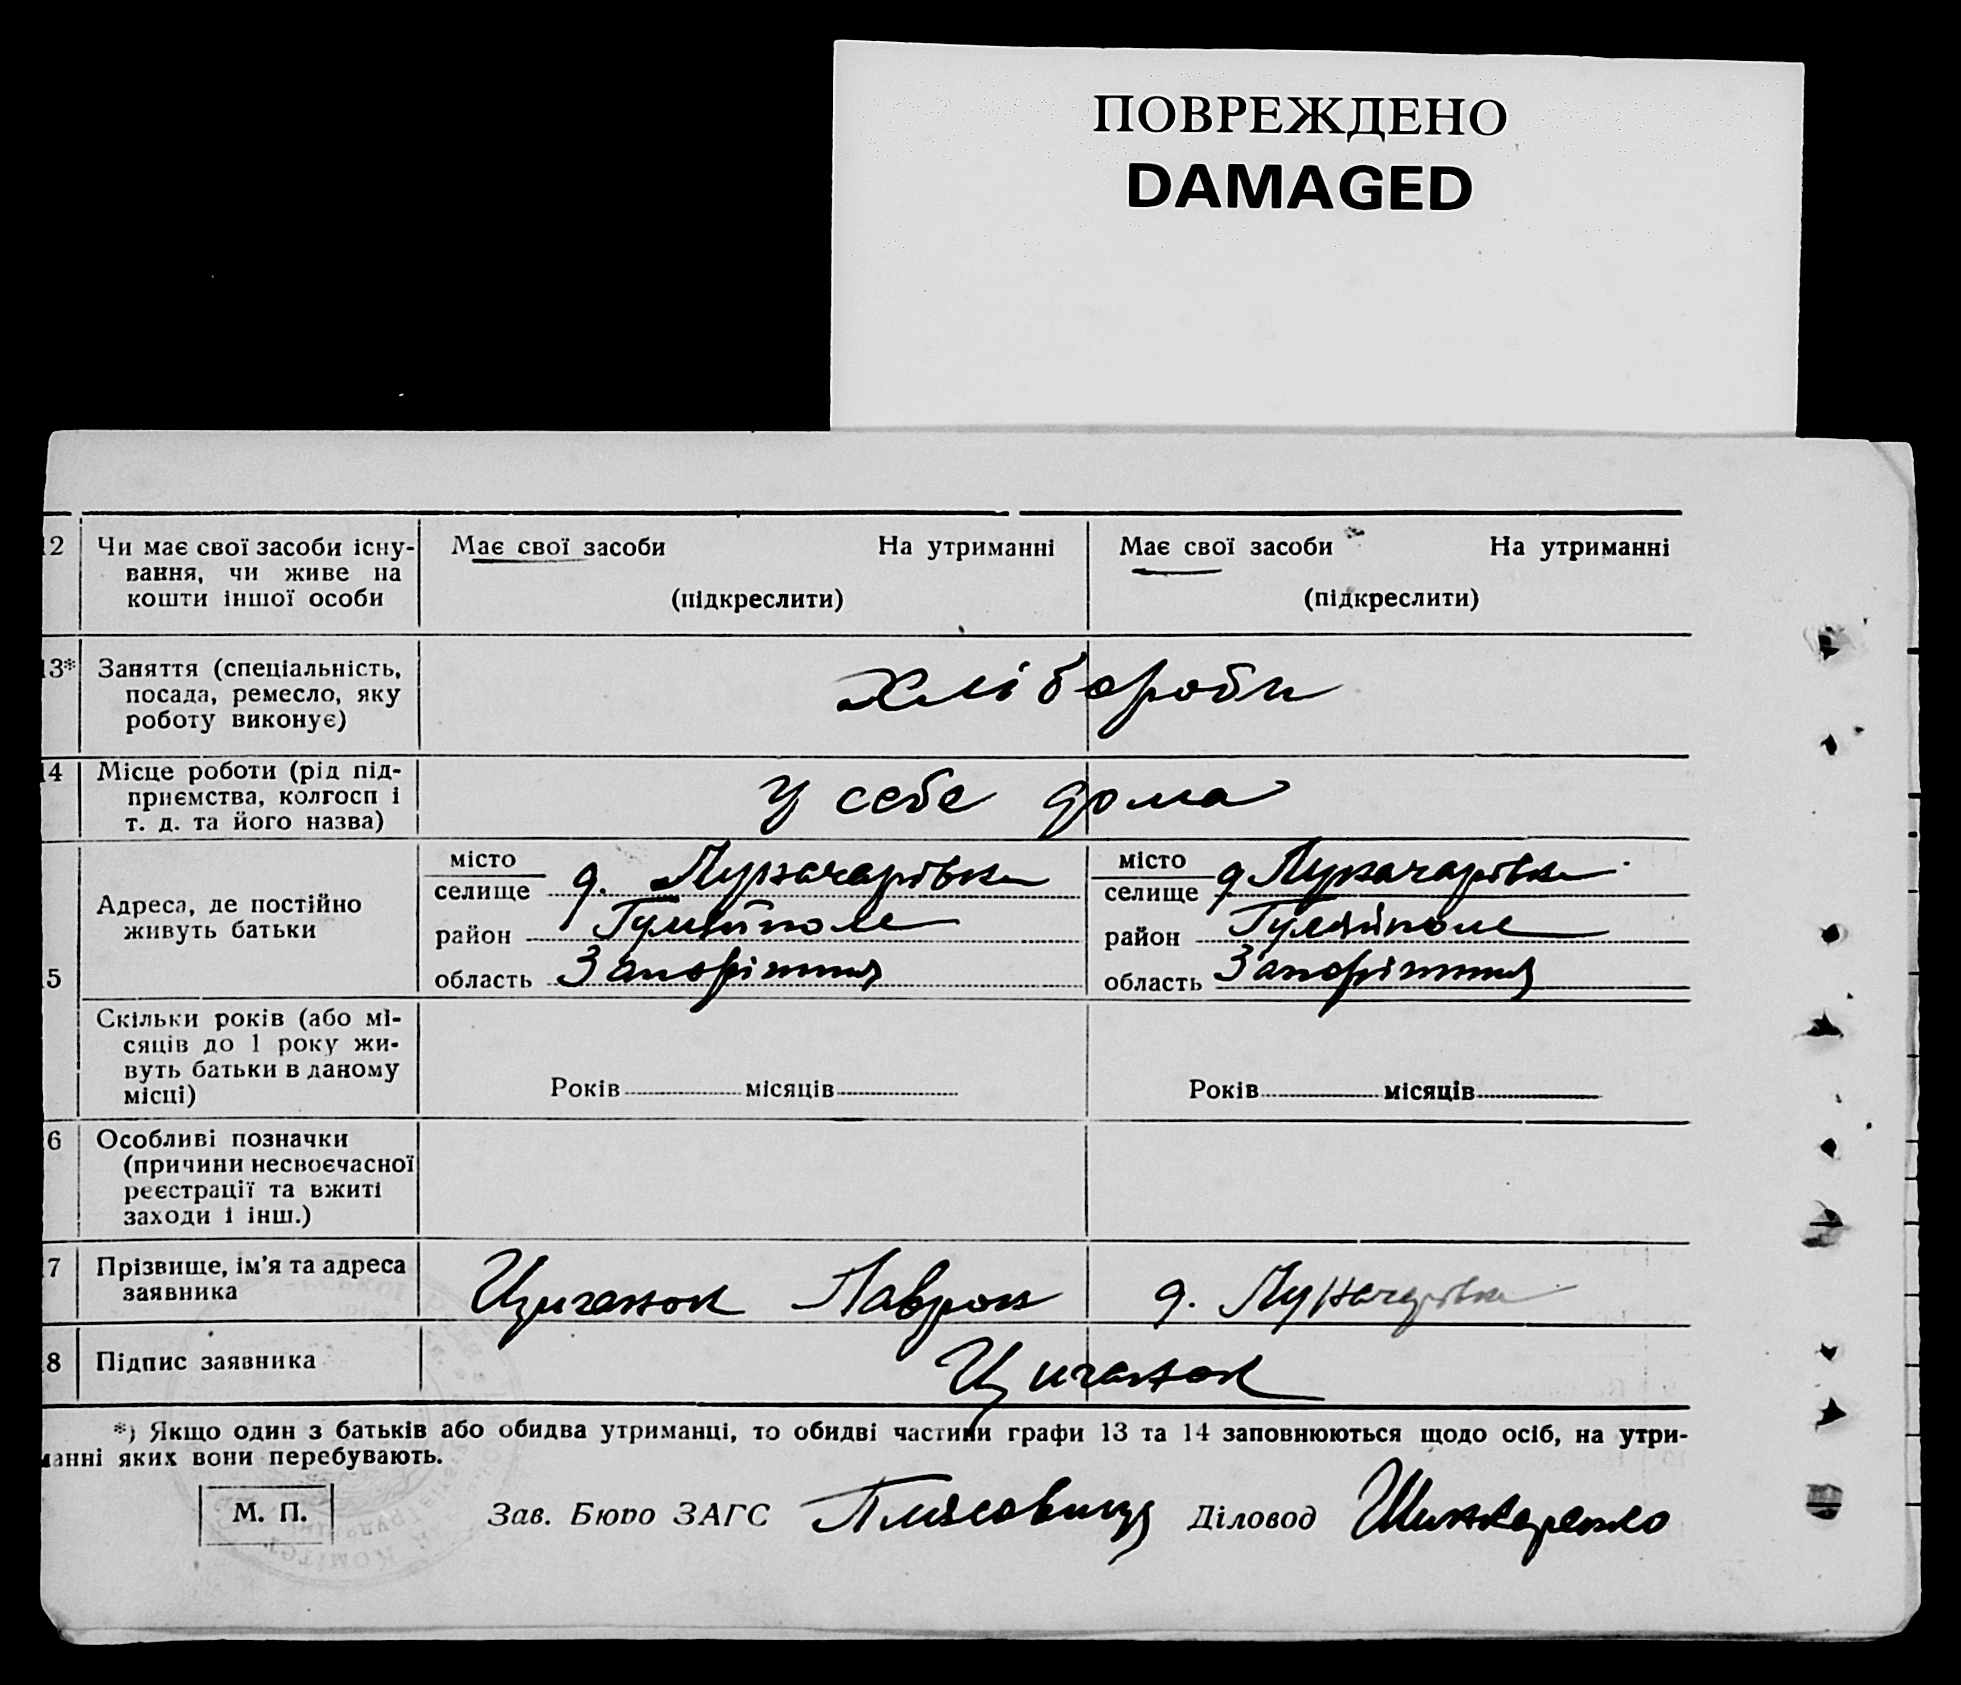 ПОВРЕЖДЕНО
DAMAGED
12 Чи має свої засоби існу- Має свої засоби На утриманні Має свої засоби На утриманні
вання, чи живе на
кошти іншої особи (підкреслити) (підкреслити)
13* Заняття (спеціальність, хлібороби
посада, ремесло, яку
роботу виконує)
14 Місце роботи (рід під- у себе дома
приємства, колгосп і
т. д. та його назва)
15 Адреса, де постійно
живуть батьки
місто місто
селище д. Луначарівка селище д Луначарівка
район Гуляйполе район Гуляйполе
область Запоріжжя область Запоріжжя
Скільки років (або мі-
сяців до 1 року жи-
вуть батьки в даному
місці) Років місяців Років місяців
6 Особливі позначки
(причини несвоєчасної
реєстрації та вжиті
заходи і інш.)
7 Прізвище, ім'я та адреса Циганок Лаврон д. Луначарівка
заявника
8 Підпис заявника Циганок
*) Якщо один з батьків або обидва утриманці, то обидві частини графи 13 та 14 заповнюються щодо осіб, на утри-
манні яких вони перебувають.
М. П. Зав. Бюро ЗАГС Діловод Шинкаренко